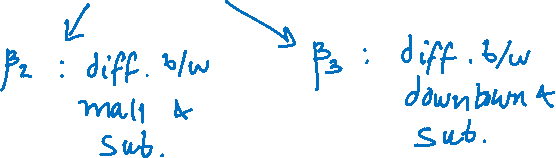 β₂ : diff. b/w
mall &
sub.
β₃ : diff. b/w
downtown &
sub.